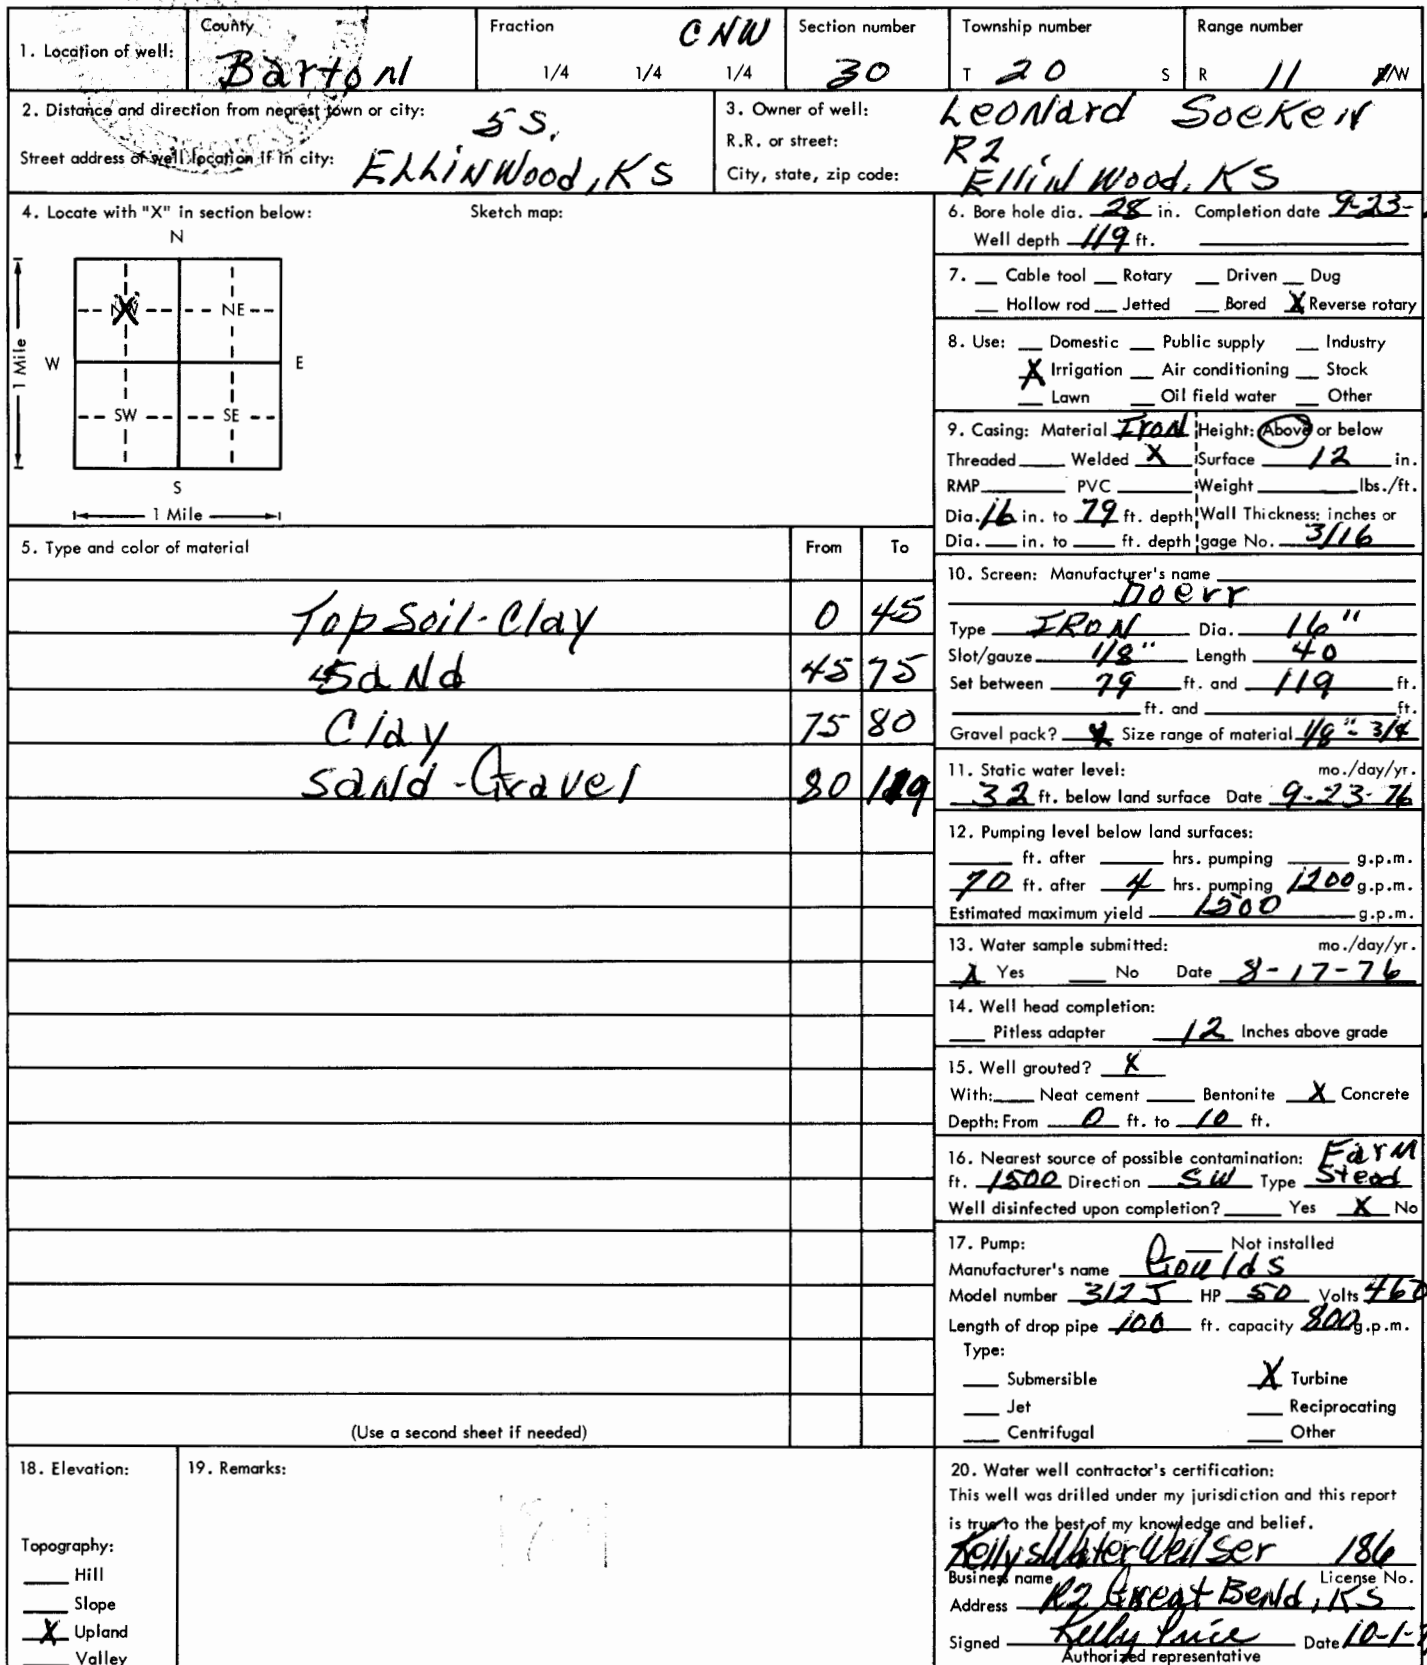 1. Location of well: County Barton Fraction CNW 1/4 1/4 1/4 Section number 30 Township number T 20 S Range number R 11 E/W
2. Distance and direction from nearest town or city: 5 S.
Street address of well location if in city: Ellinwood, KS
3. Owner of well: Leonard Soeken
R.R. or street: R2
City, state, zip code: Ellinwood, KS
4. Locate with "X" in section below: Sketch map:
N
NW NE
W E
1 Mile
SW SE
S
1 Mile
5. Type and color of material From To
Top Soil-Clay 0 45
Sand 45 75
Clay 75 80
Sand-Gravel 80 119
(Use a second sheet if needed)
6. Bore hole dia. 28 in. Completion date 9-23-
Well depth 119 ft.
7. Cable tool Rotary Driven Dug
Hollow rod Jetted Bored X Reverse rotary
8. Use: Domestic Public supply Industry
X Irrigation Air conditioning Stock
Lawn Oil field water Other
9. Casing: Material Iron Height: Above or below
Threaded Welded X Surface 12 in.
RMP PVC Weight lbs./ft.
Dia. 16 in. to 79 ft. depth Wall Thickness: inches or
Dia. in. to ft. depth gage No. 3/16
10. Screen: Manufacturer's name
Doerr
Type IRON Dia. 16"
Slot/gauze 1/8" Length 40
Set between 79 ft. and 119 ft.
ft. and ft.
Gravel pack? X Size range of material 1/8"- 3/4
11. Static water level: mo./day/yr.
32 ft. below land surface Date 9-23-76
12. Pumping level below land surfaces:
ft. after hrs. pumping g.p.m.
70 ft. after 4 hrs. pumping 1200 g.p.m.
Estimated maximum yield 1500 g.p.m.
13. Water sample submitted: mo./day/yr.
X Yes No Date 8-17-76
14. Well head completion:
Pitless adapter 12 Inches above grade
15. Well grouted? X
With: Neat cement Bentonite X Concrete
Depth: From 0 ft. to 10 ft.
16. Nearest source of possible contamination: Farm
ft. 1500 Direction SW Type Stead
Well disinfected upon completion? Yes X No
17. Pump: Not installed
Manufacturer's name Goulds
Model number 312J HP 50 Volts 460
Length of drop pipe 100 ft. capacity 800 g.p.m.
Type:
Submersible X Turbine
Jet Reciprocating
Centrifugal Other
18. Elevation:
Topography:
Hill
Slope
X Upland
Valley
19. Remarks:
20. Water well contractor's certification:
This well was drilled under my jurisdiction and this report
is true to the best of my knowledge and belief.
Kellys Water Well Ser 186
Business name License No.
Address R2 Great Bend, KS
Signed Kelly Price Date 10-1-
Authorized representative